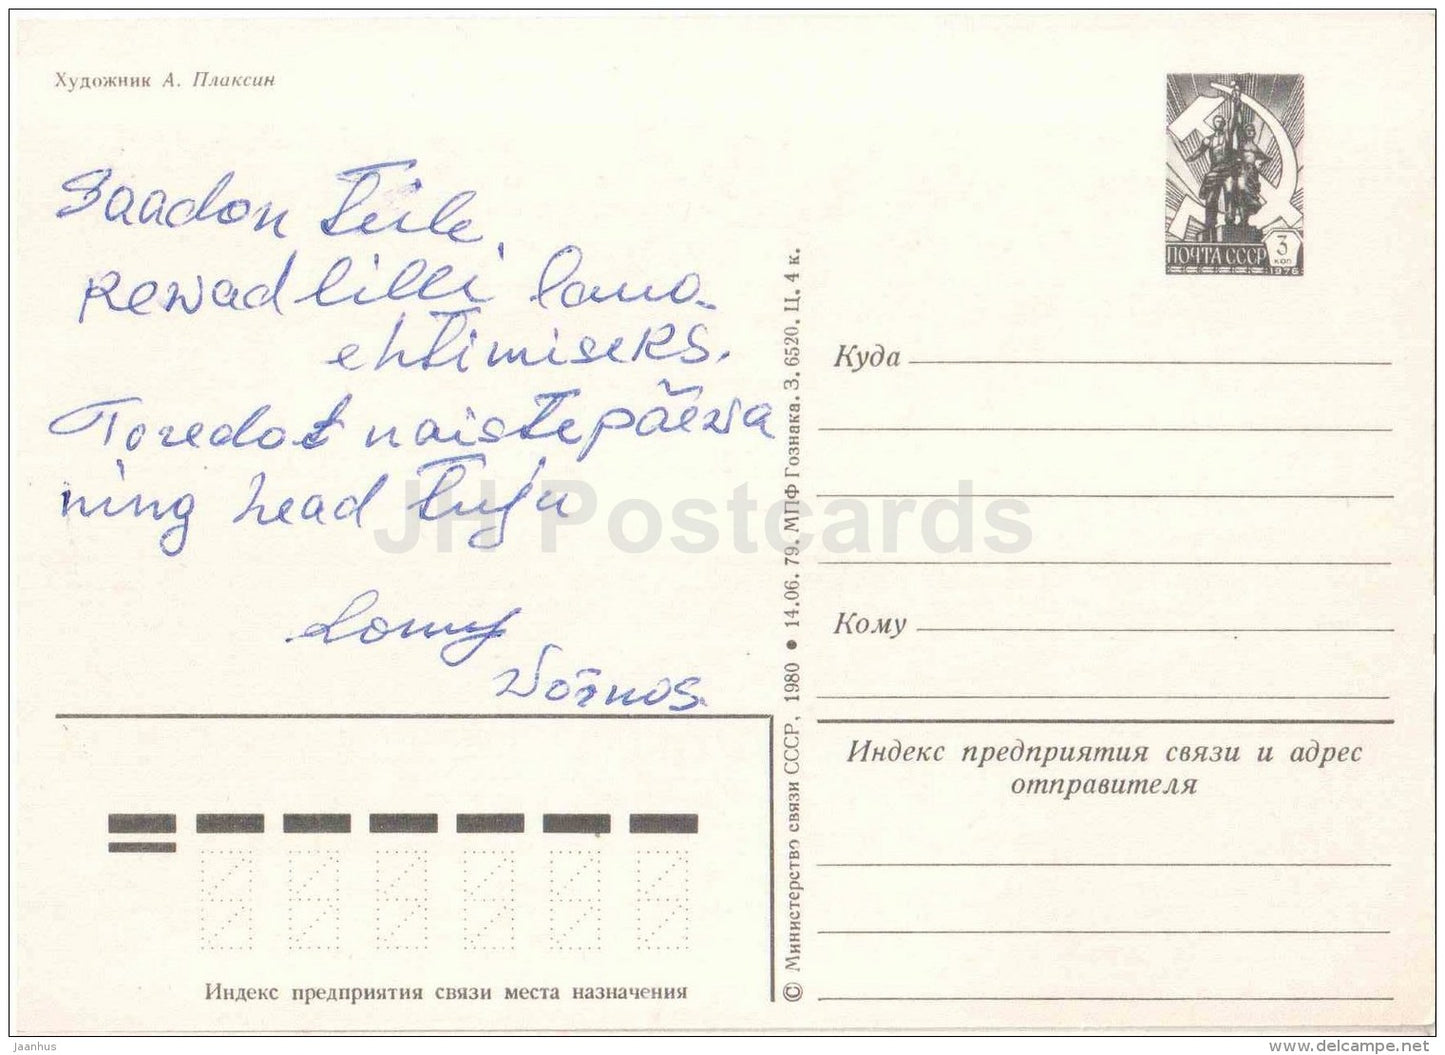 Художник А. Плаксин
ПОЧТА СССР 3 коп 1976
Saadan Teile
kevad lilli toa
ehtimiseks.
Toredat naistepäeva
ning head tuju
Võrnos.
JH Postcards
Куда
Кому
Индекс предприятия связи и адрес
отправителя
© Министерство связи СССР, 1980 • 14.06. 79. МПФ Гознака. З. 6520. Ц. 4 к.
Индекс предприятия связи места назначения
jaanhus
www.delcampe.net